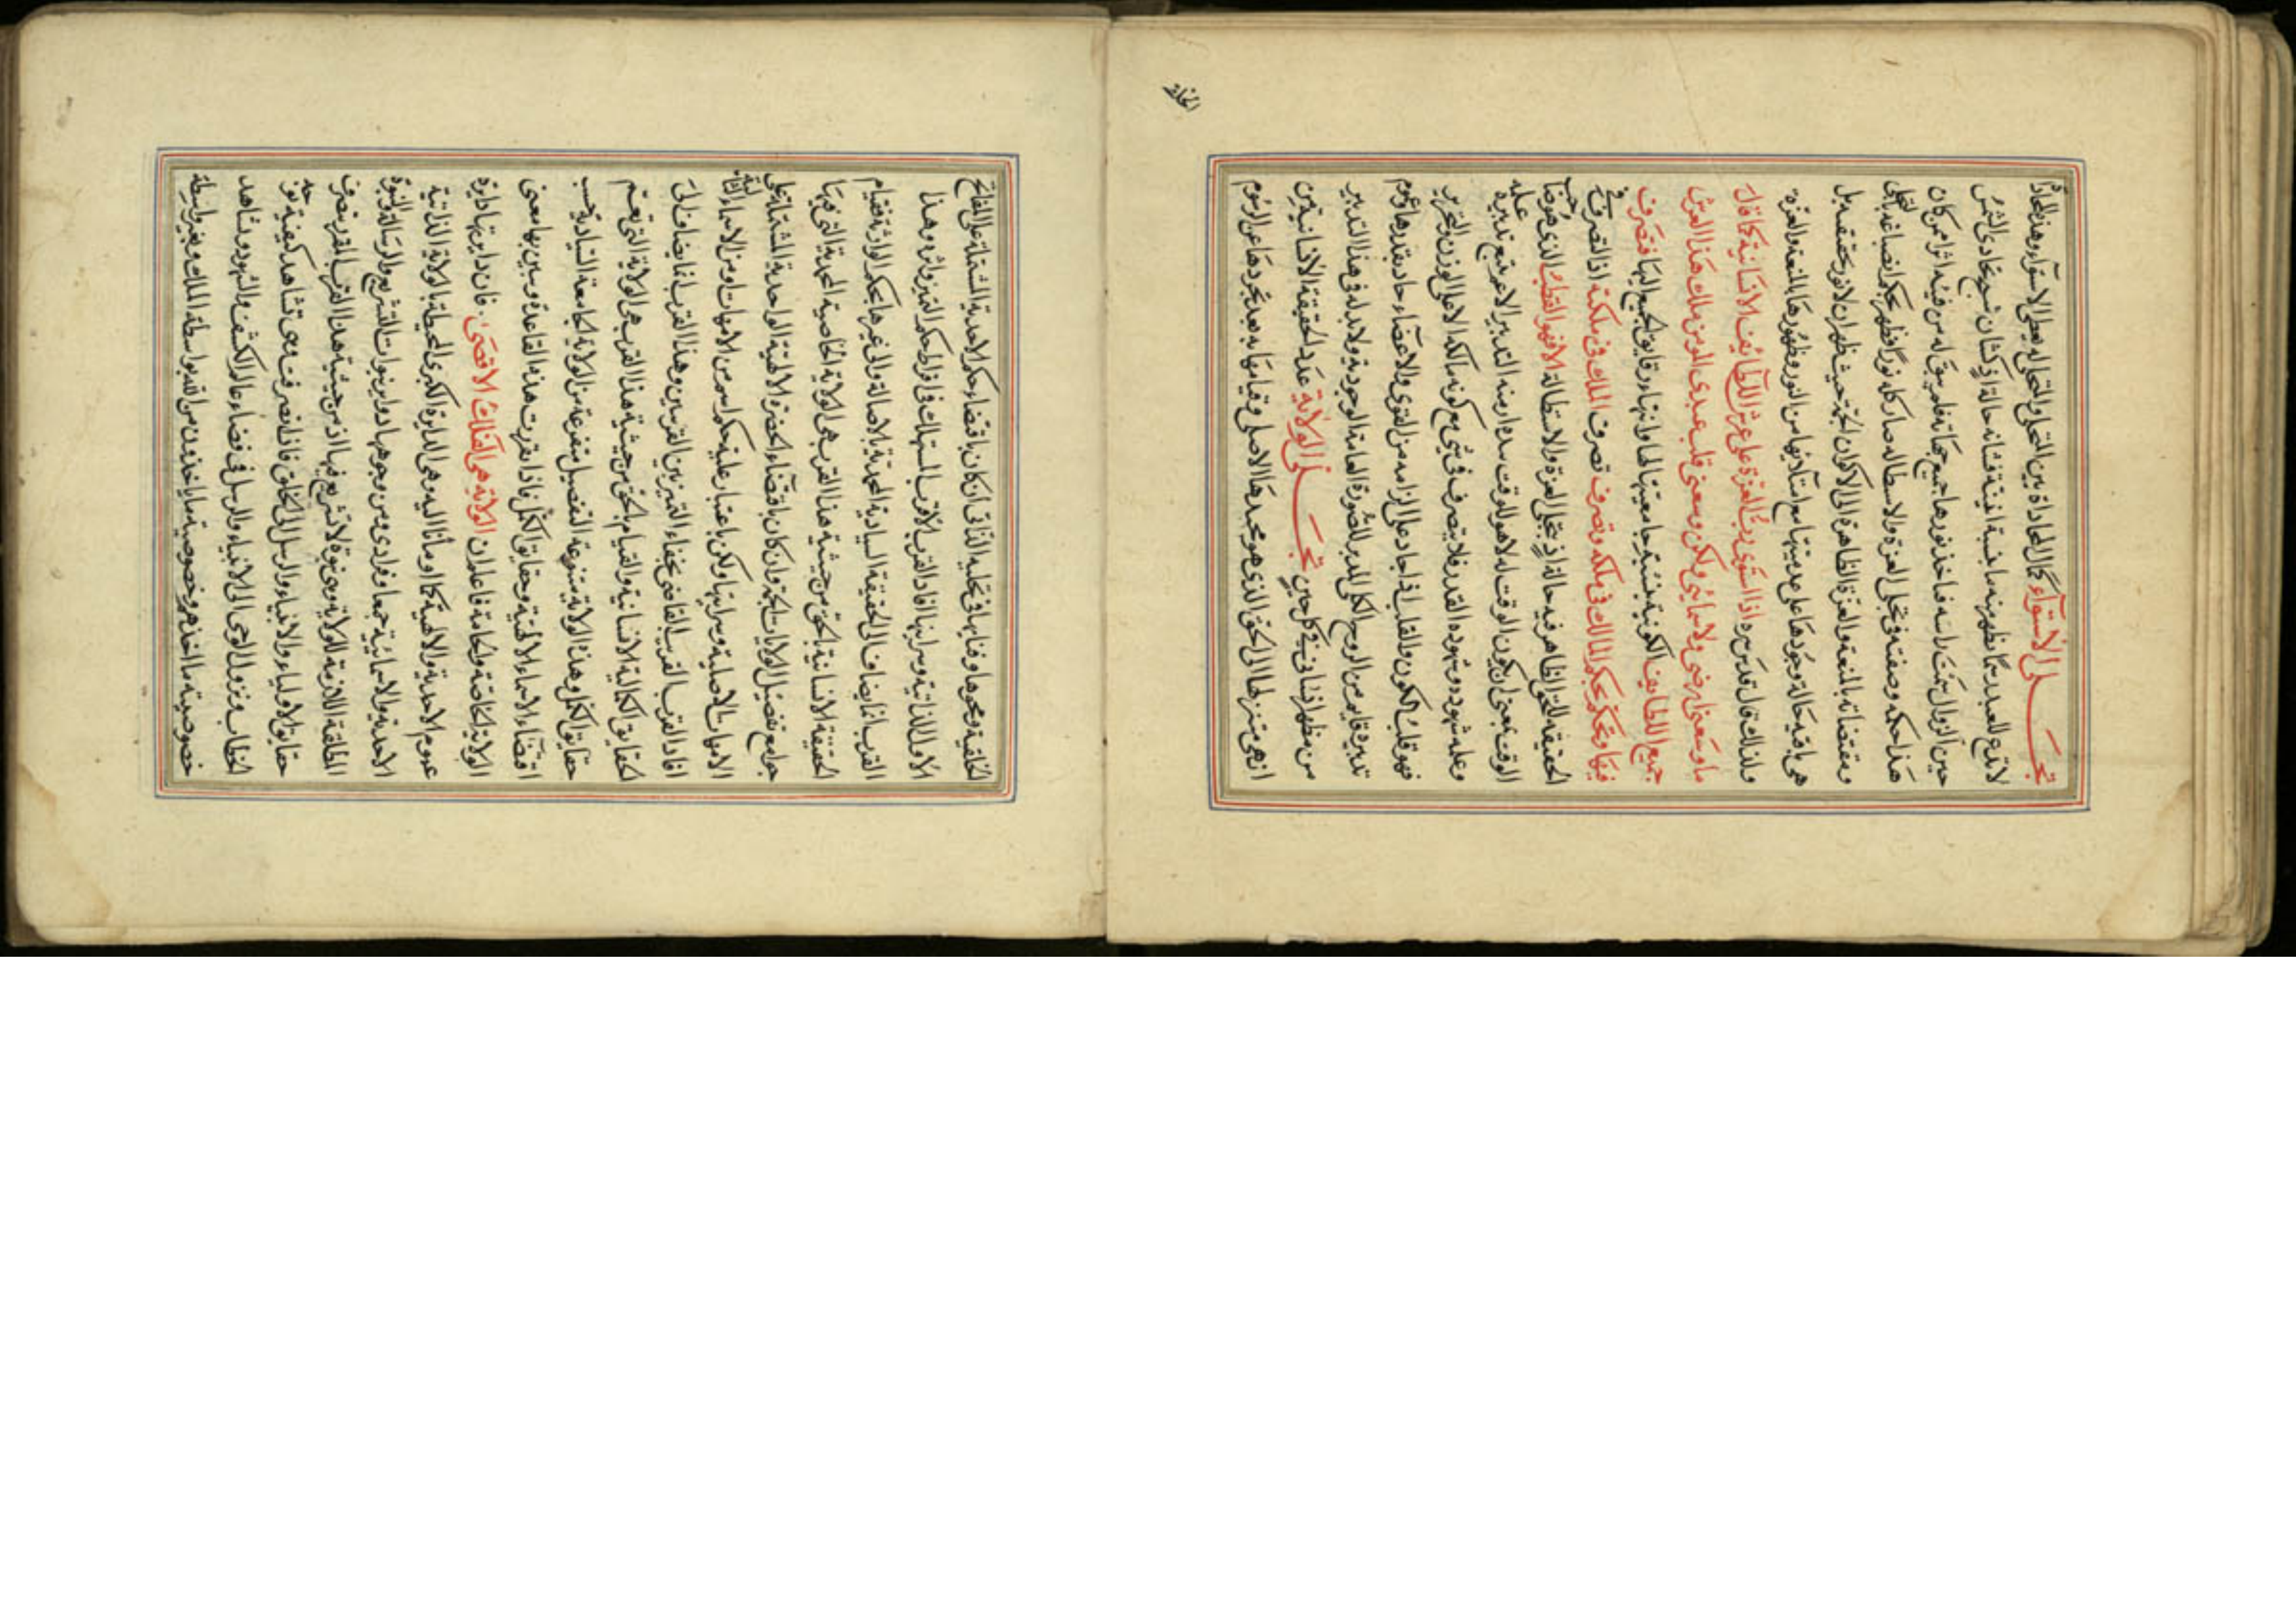 تجلي الاستواء كمال المحاذاة بين المتجلي والمتجلى له يعطي الاستواء وهذه المحاذاة
لا تدع للعبد مما ظهر منه ما نسبة انيته فشانه حالتئذ كشان شبح تحاذى الشمس
حين الزوال سمت راسه فاخذ نورها جميع جهاته فلم يبق له من فيئه اثرا فمن كان
هذا حكمه وصفته في تجلي العزة والاستطالة صار كله نورا فظهر بحكم انصباغه بالتجلي
ومقتضاته بالمنعة والعزة الظاهرة الى الاكوان الجمة حيث ظهر ان لا نور يحققه بل
هي باقية حالة وجودها على عدميتها مع استلابها من النور وظهورها بالمنعة والعزة
ولذلك قال قدس سره اذا استوى رب العزة على عرش اللطائف الانسانية كما قال
ما وسعني ارضي ولا سمائي ولكن وسعني قلب عبدي المومن ملك هذا العرش
جميع اللطايف الكونية بنسبة جامعيتها لها وانتهاء رقايق الجميع اليها فتصرف
فيها وتحكم بحكم المالك في ملكه وتصرف تصرف الملك في ملكه اذ التصرف في
الحقيقة للحق الظاهر فيه حالة اذ تجلي العزة والاستطالة الا فهو القطب الذي هو صاحب
الوقت بمعنى ان يكون الوقت له لا هو للوقت سداد منه التدبير الاعم تبع تدبيره علمه
وعلمه شهوده وشهوده القدر فلا يتصرف في شيء مع كونه مالكه الا على الوزن والتحرير
فهو قلب الكون والقلب اذا جاد على ما لزمه من القوى والاعضاء جاد بقدر ها عموم
تدبيره قايم من الروح الكلي المدبر للصورة العامة الوجودية ولا بد له في هذا التدبير
من مظهر انساني في كل حين تجلي الولاية عند الحقيقة الانسانية من
ازهى متنزلها الى الحق الذي هو محمدها الاصلي وقيامها به بعد تجردها عن الرسوم
الخلقية ومحوها وفنائها في تجليه الذاتي ان كان باقتضاء حكم الاحدية المشتملة على المفاتح
الاول الذاتية وسرايتها افاد القرب الاقرب المستهلك في افراط حكم التميز واثره وهذا
القرب انما يضاف الى الحقيقة السيادية المحمدية بالاصالة والى غيرها بحكم الوارثة فقيام
الحقيقة الانسانية بالحق من حيثية هذا القرب هي الولاية الخاصية المحمدية التي فيها
جوامع تفصيل الولايات الجمة وان كان باقتضاء الحضرة الالهية الواحدية المشتملة على
الامهات الاصلية وسرايتها ولكن باعتبار غلبة حكم اسم من الامهات ومن الاسماء التالية
افاد القرب القريب القاضي بخفاء التميز بين القربين وهذا القرب انما يضاف الى
الحقايق الكمالية الانسانية والقيام بالحق من حيثية هذا القرب هي الولاية التي تعم
حقايق الكمل وهذه الولاية متنوعة التفصيل متفرعة من الولاية الجامعة السيادية بحسب
اقتضاء الاسماء الالهية وحقايق الكمل فاذا تقررت هذه القاعدة وتبين بها معنى
الولاية الخاصة والعامة فاعلم ان الولاية هي الفلك الاقصى فان دايرتها دايرة
عموم الاحدية والالهية كما اومأنا اليه وهي الدايرة الكبرى المحيطة بالولاية الذاتية
الاحدية والاسمائية جمعا وفرادى ومن وجوهها دواير نبوات التشريع والرسالة والنبوة
المطلقة اللازمة للولاية وهي نبوة لا تشريع فيها اذ من حيثية هذا القرب المقرر تعرف
حقايق الاولياء والانبياء والرسل الى الخلق فاذا تصرفت فهي تشاهد كيفية توزيعه
الخطاب ونزول الوحي الى الانبياء والرسل في فضاء عالم الكشف والشهود وتشاهد
خصوصية ماخذهم وخصوصية ما ياخذون من الله بواسطة الملك وبغير واسطة